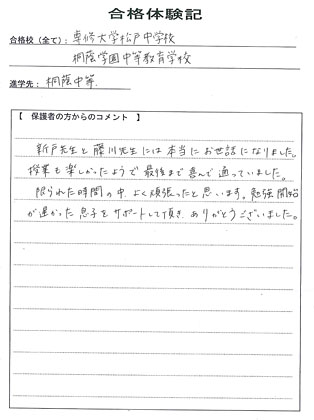 合格体験記
合格校(全て): 専修大学松戸中学校
桐蔭学園中等教育学校
進学先: 桐蔭中等.
【 保護者の方からのコメント 】
新戸先生と藤川先生には本当にお世話になりました。
授業も楽しかったようで最後まで喜んで通っていました。
限られた時間の中、よく頑張ったと思います。勉強開始
が遅かった息子をサポートして頂き、ありがとうございました。